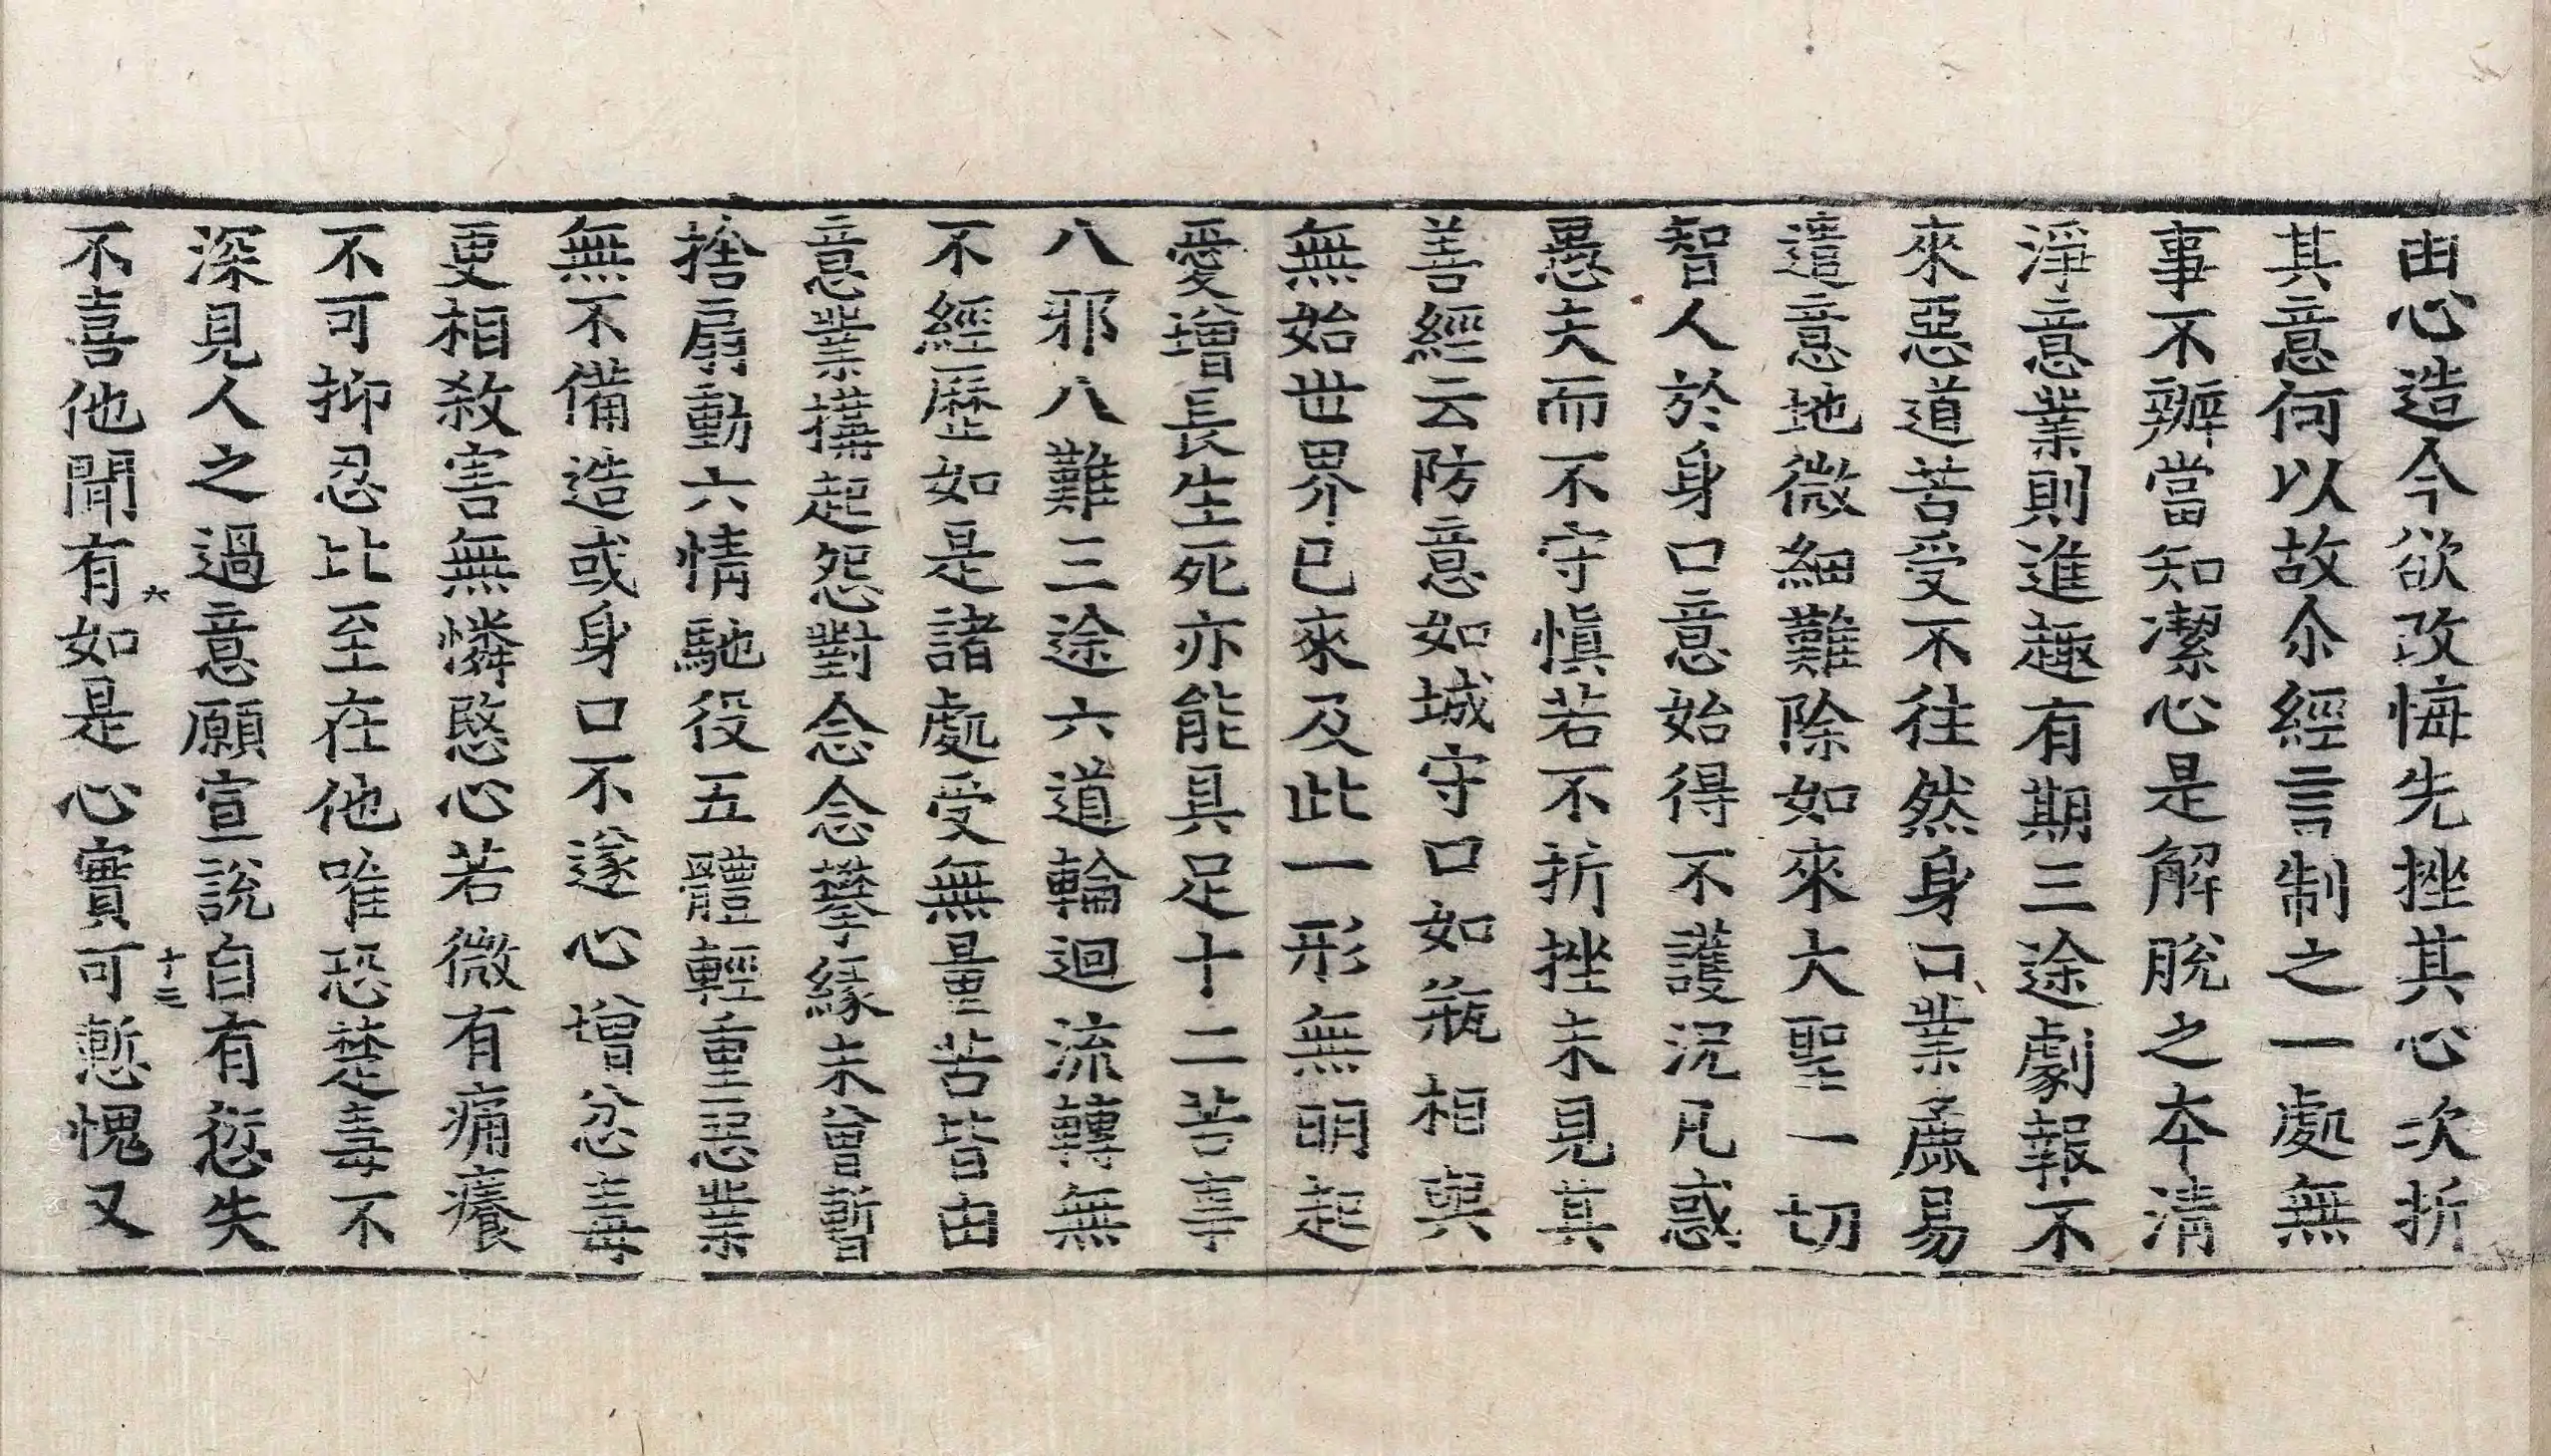 由心造今欲改悔先挫其心次折
其意何以故尒經言制之一處無
事不辦當知潔心是解脫之本清
淨意業則進趣有期三途劇報不
來惡道苦受不往然身口業麁易
遣意地微細難除如來大聖一切
智人於身口意始得不護況凡惑
愚夫而不守慎若不折挫未見其
善經云防意如城守口如瓶相與
無始世界已來及此一形無明起
愛增長生死亦能具足十二苦事
八邪八難三途六道輪迴流轉無
不經歷如是諸處受無量苦皆由
意業搆起怨對念念攀緣未曾暫
捨扇動六情馳役五體輕重惡業
無不備造或身口不遂心增忿毒
更相敘害無憐愍心若微有痛癢
不可抑忍比至在他唯恐楚毒不
深見人之過意願宣說自有愆失
不喜他聞有如是心實可慙愧又
六
十三